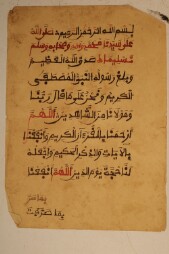 بسم الله الرحمن الرحيم صلى الله
على سيدنا محمد وآله وصحبه وسلم
تسليما صدق الله العظيم
وبلغ رسوله النبي المصطفى
الكريم ونحن على ما قال ربنا
ومولانا من الشاهدين اللهم
ارحمنا بالقرآن الكريم وانفعنا
بالآيات والذكر الحكيم واجعله
لنا حجة يوم الدين اللهم انفعنا